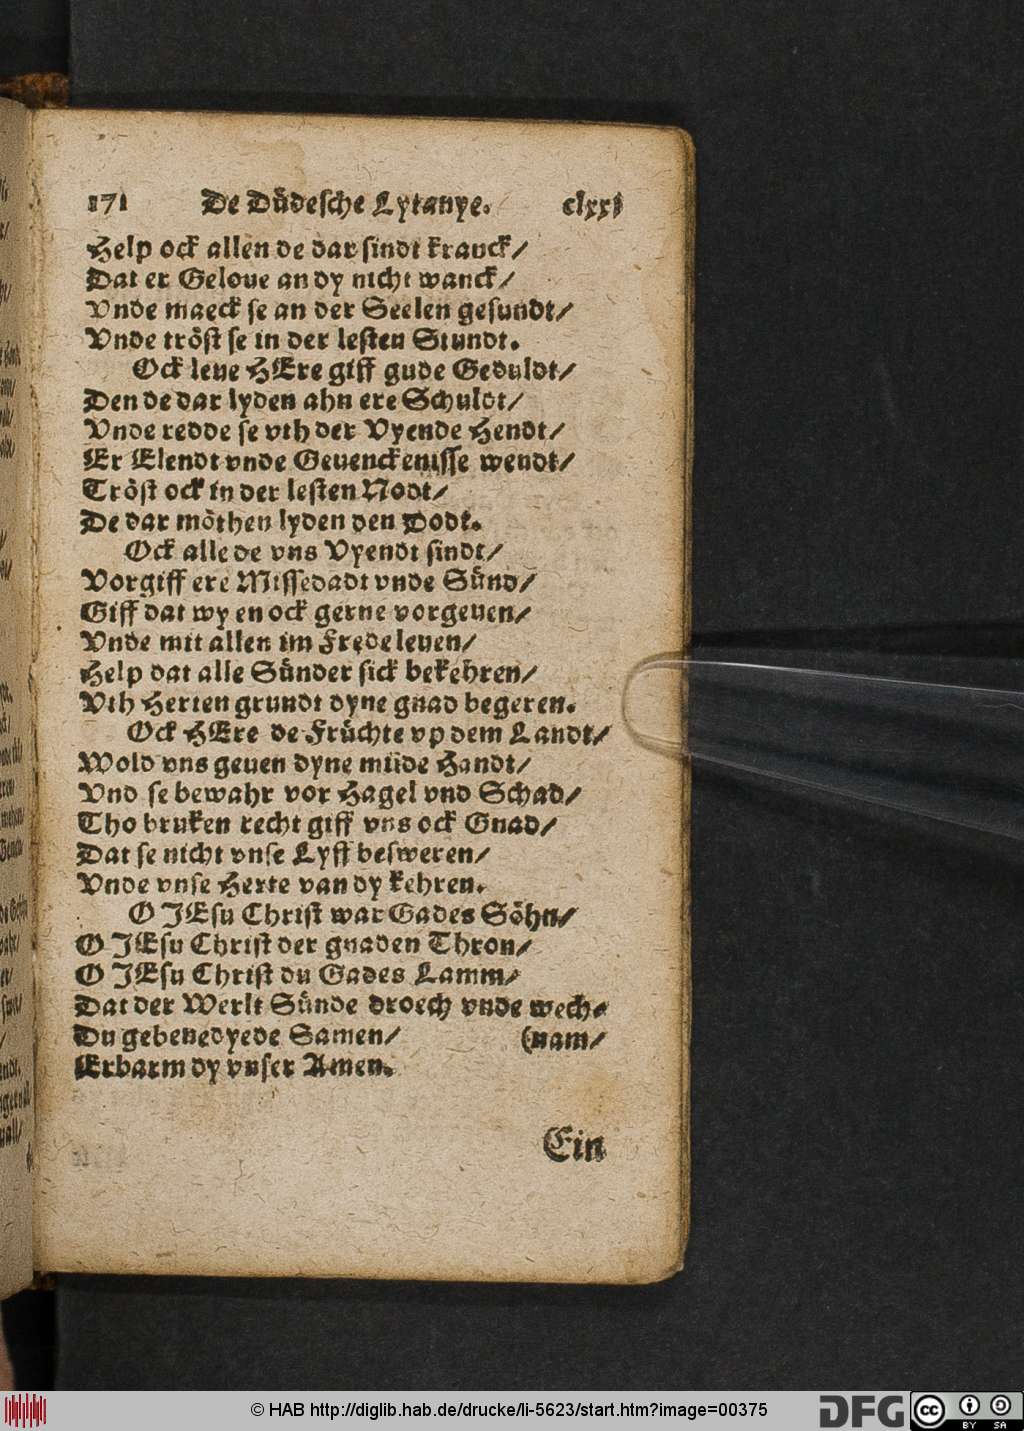 171 De Düdesche Lytanye. clxxj
Help ock allen de dar sindt kranck/
Dat er Geloue an dy nicht wanck/
Vnde maeck se an der Seelen gesundt/
Vnde tröst se in der lesten Stundt.
Ock leue HEre giff gude Geduldt/
Den de dar lyden ahn ere Schuldt/
Vnde redde se vth der Vyende Hendt/
Er Elendt vnde Geuenckenisse wendt/
Tröst ock in der lesten Nodt/
De dar möthen lyden den Dodt.
Ock alle de vns Vyendt sindt/
Vorgiff ere Missedadt vnde Sünd/
Giff dat wy en ock gerne vorgeuen/
Vnde mit allen im Frede leuen/
Help dat alle Sünder sick bekehren/
Vth Herten grundt dyne gnad begeren.
Ock HEre de Früchte vp dem Landt/
Wold vns geuen dyne milde Handt/
Vnd se bewahr vor Hagel vnd Schad/
Tho bruken recht giff vns ock Gnad/
Dat se nicht vnse Lyff besweren/
Vnde vnse Herte van dy kehren.
O JEsu Christ war Gades Söhn/
O JEsu Christ der gnaden Thron/
O JEsu Christ du Gades Lamm/
Dat der Werlt Sünde droech vnde wech-
Du gebenedyede Samen/ (nam/
Erbarm dy vnser Amen.
Ein
© HAB http://diglib.hab.de/drucke/li-5623/start.htm?image=00375
DFG
cc BY SA